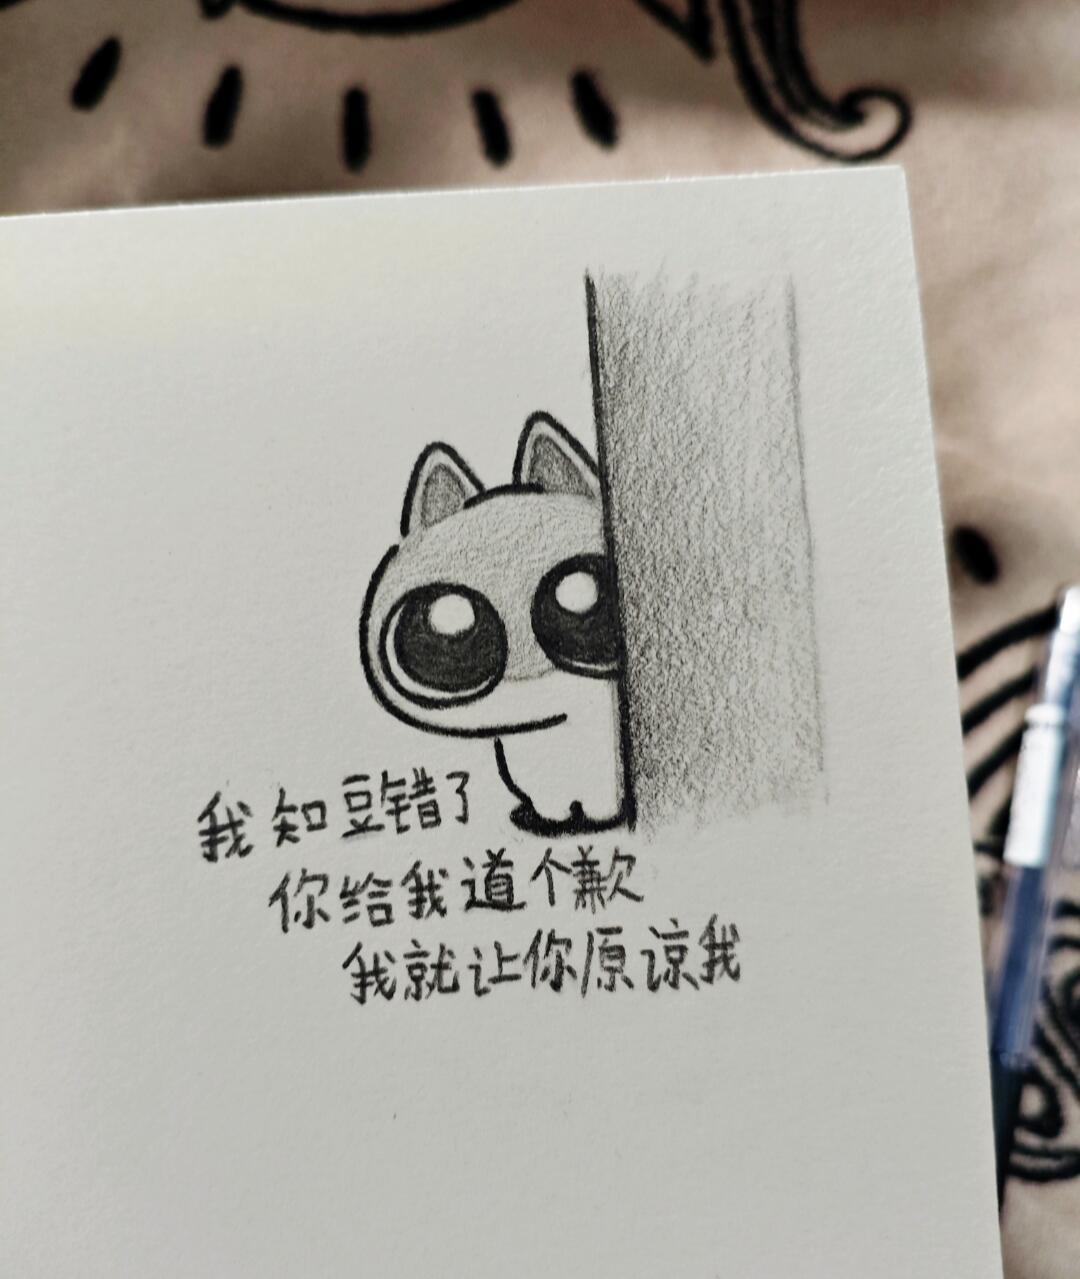 我知豆错了
你给我道个歉
我就让你原谅我